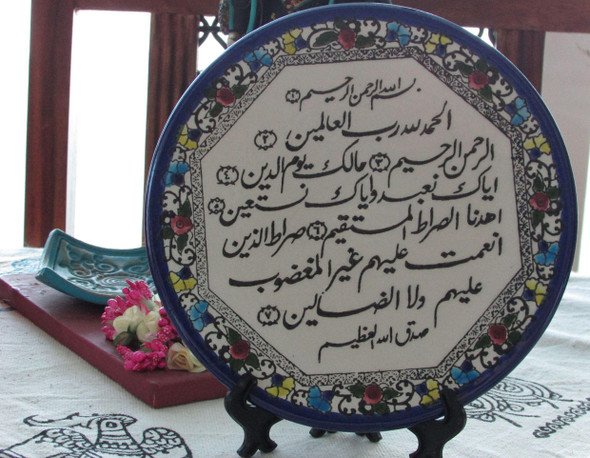 بسم الله الرحمن الرحيم ١
الحمد لله رب العالمين ٢
الرحمن الرحيم ٣ مالك يوم الدين ٤
اياك نعبد واياك نستعين ٥
اهدنا الصراط المستقيم ٦ صراط الذين
انعمت عليهم غير المغضوب
عليهم ولا الضالين ٧
صدق الله العظيم